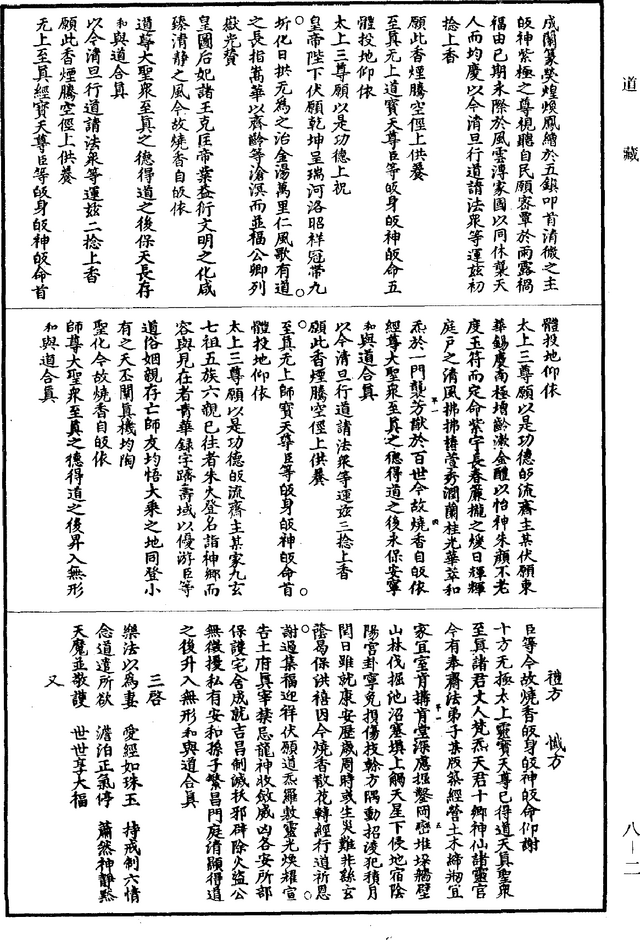 道藏
成蘭篆熒煌煥鳳繪於五鎮叩首清微之主
皈神紫極之尊視聽自民願密覃於雨露禍
福由己期永際於風雲溥家國以同休龔天
人而均慶以今清旦行道請法衆等運茲初
捻上香
願此香煙騰空徑上供養
至真无上道寶天尊臣等皈身皈神皈命五
體投地仰依
太上三尊願以是功德上祝
皇帝陛下伏願乾坤呈瑞河洛昭祥冠帶九
圻化日拱无為之治金湯萬里仁風歌有道
之長指萬華以齊齡等滄溟而並福公卿列
嶽光贊
皇圖后妃諸王克匡帝業益衍文明之化咸
臻清静之風今故燒香自皈依
道尊大聖衆至真之德得道之後保天長存
和與道合真
以今清旦行道請法衆等運茲二捻上香
願此香煙騰空徑上供養
无上至真經寶天尊臣等皈身皈神皈命首
體投地仰依
太上三尊願以是功德皈流齋主某伏願東
華錫慶南極增齡漱金醴以怡神朱顔不老
度玉符而定命紫字長春簾攏之煖日輝輝
庭戶之清風拂拂椿萱秀潤蘭桂光華萃和
炁於一門襲芳猷於百世今故燒香自皈依
經尊大聖衆至真之德得道之後永保安寧
和與道合真
以今清旦行道請法衆等運茲三捻上香
願此香煙騰空徑上供養
至真无上師寶天尊臣等皈身皈神皈命首
體投地仰依
太上三尊願以是功德皈流齋主某家九玄
七祖五族六親已往者朱火登名詣神鄉而
容與見在者青華録字躋壽域以優游臣等
道俗姻親存亡師友均悟大乘之地同登小
有之天丕闡真機均陶
聖化今故燒香自皈依
師尊大聖衆至真之德得道之後昇入無形
和與道合真
禮方　懺方
臣等今故燒香皈身皈神皈命仰謝
十方无極太上靈寶天尊已得道大聖衆
至真諸君丈人梵炁天君十鄉神仙諸靈官
今有奉齋法弟子某版築經營土木締剏宜
家宜室肯搆肯堂深應掘鑿岡巒堆垛牆壁
山林伐掘池沼塞填上觸天星下侵地宿陰
陽宮卦寧免損傷枝榦方隅動招淩犯積月
閏日雖就康安歷歲周時或生災難非緣玄
蔭曷保洪禧因今燒香散花轉經行道祈恩
謝過集福迎祥伏願道炁羅敷靈光煥耀宣
告土府真宰禁忌龍神收斂威凶各安所部
保護宅舍成就吉昌制滅袄邪辟除火盜公
無徵擾私有安和孫子繁昌門庭清顯得道
之後升入無形和與道合真
三啓
樂法以為妻　愛經如珠玉　持戒制六情
念道遣所欲　澹泊正氣停　蕭然神静默
天魔並敬護　世世享大福
又
八—二